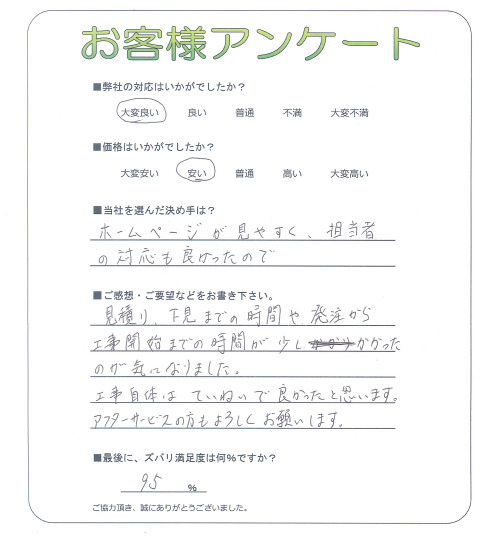 お客様アンケート
■弊社の対応はいかがでしたか？
大変良い 良い 普通 不満 大変不満
■価格はいかがでしたか？
大変安い 安い 普通 高い 大変高い
■当社を選んだ決め手は？
ホームページが見やすく、担当者
の対応も良かったので
■ご感想・ご要望などをお書き下さい。
見積り、下見までの時間や、発注から
工事開始までの時間が少しかかった
のが気になりました。
工事自体はていねいで良かったと思います。
アフターサービスの方もよろしくお願いします。
■最後に、ズバリ満足度は何%ですか？
95 %
ご協力頂き、誠にありがとうございました。